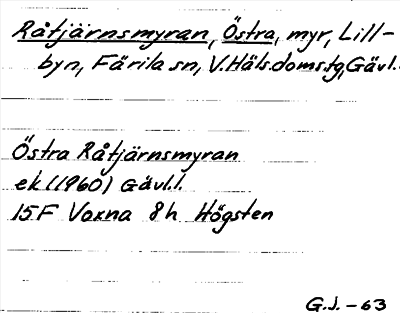 Råtjärnsmyran, Östra, myr, Lill-
byn, Färila sn, V.Häls.doms.tg, Gävl.l.
Östra Råtjärnsmyran
ek (1960) Gävl.l.
15F Voxna 8h Högsten
G.J. -63